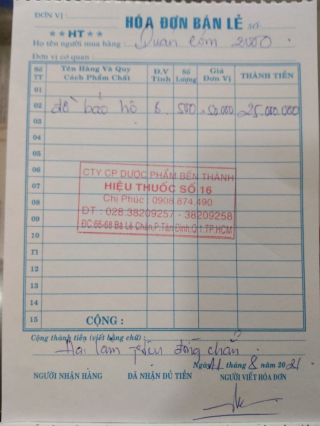 ĐƠN VỊ:
HÓA ĐƠN BÁN LẺ SỐ:
★★HT★★
Họ tên người mua hàng: Quán cơm 2000
Đơn vị cơ quan:
Số TT Tên Hàng Và Quy Cách Phẩm Chất Đ.V Tính Số Lượng Giá Đơn Vị THÀNH TIỀN
01
02 đồ bảo hộ B. 500 x 50.000 25.000.000
03
04
05
06
07
CTY CP DƯỢC PHẨM BẾN THÀNH
08
HIỆU THUỐC SỐ 16
Chị Phúc : 0908 674 490
09
ĐT : 028.38209257 - 38209258
10
ĐC:66-68 Bà Lê Chân,P.Tân Định,Q.1,TP.HCM
11
12
13
14
15 CỘNG :
Cộng thành tiền (viết bằng chữ) :
Hai lăm triệu đồng chẵn
Ngày 21 tháng 8 năm 2021
NGƯỜI NHẬN HÀNG ĐÃ NHẬN ĐỦ TIỀN NGƯỜI VIẾT HÓA ĐƠN